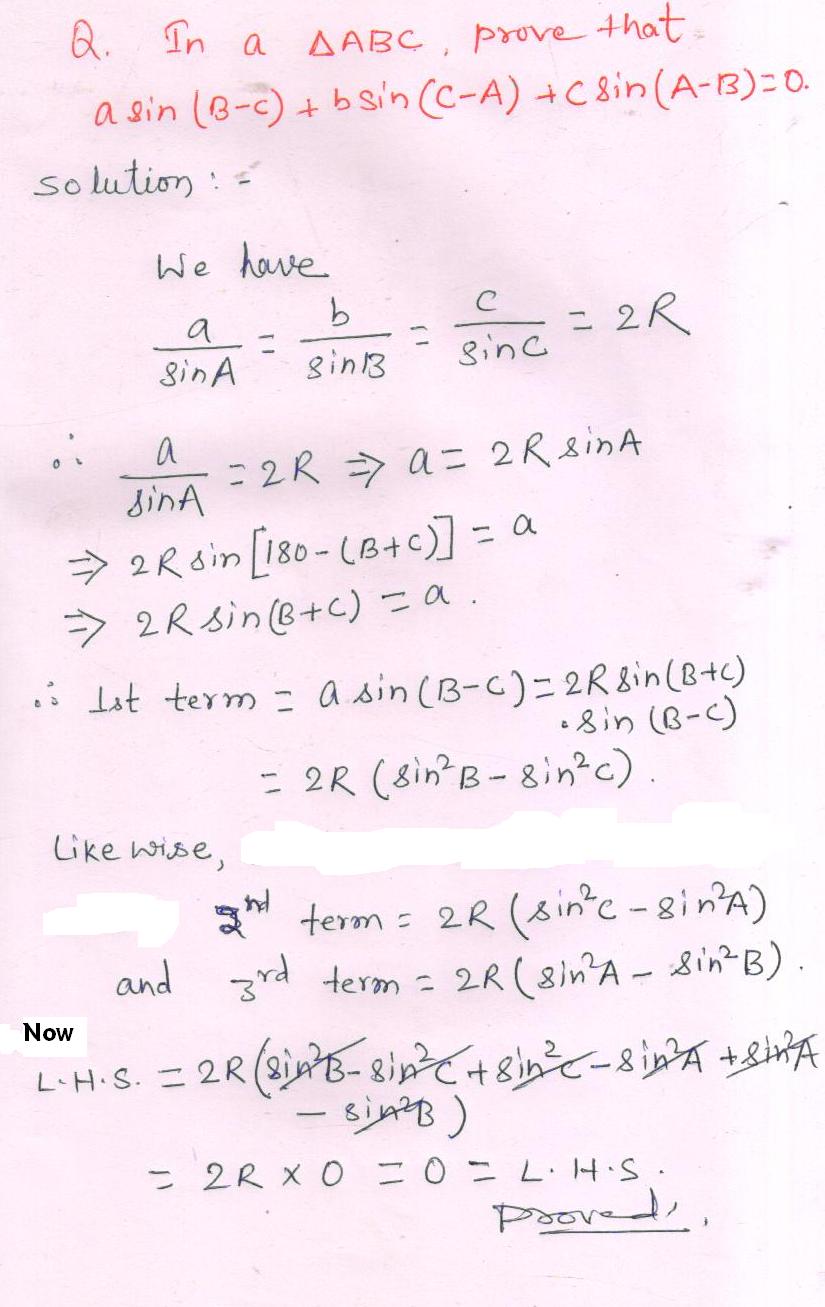 Q. In a ΔABC, prove that
a sin (B-C) + b sin (C-A) + C sin (A-B) = 0.
solution : -
We have
a/sinA = b/sinB = c/sinC = 2R
∴ a/sinA = 2R ⇒ a = 2R sinA
⇒ 2R sin [180 - (B+C)] = a
⇒ 2R sin(B+C) = a .
∴ 1st term = a sin (B-C) = 2R sin(B+C)
. sin (B-C)
= 2R (sin²B - sin²C) .
Like wise,
2nd term = 2R (sin²C - sin²A)
and 3rd term = 2R (sin²A - sin²B) .
Now
L.H.S. = 2R (sin²B - sin²C + sin²C - sin²A + sin²A
- sin²B )
= 2R × 0 = 0 = L. H.S .
proved,